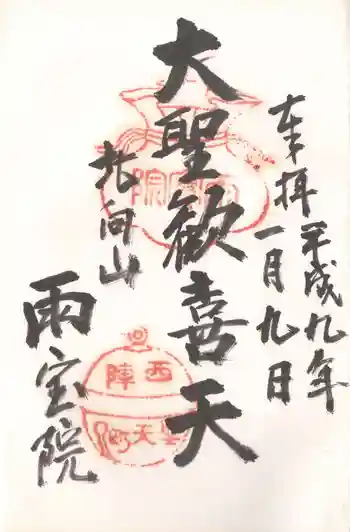 奉拝
平成九年
一月九日
大聖歓喜天
北向山
雨宝院
西陣
聖天